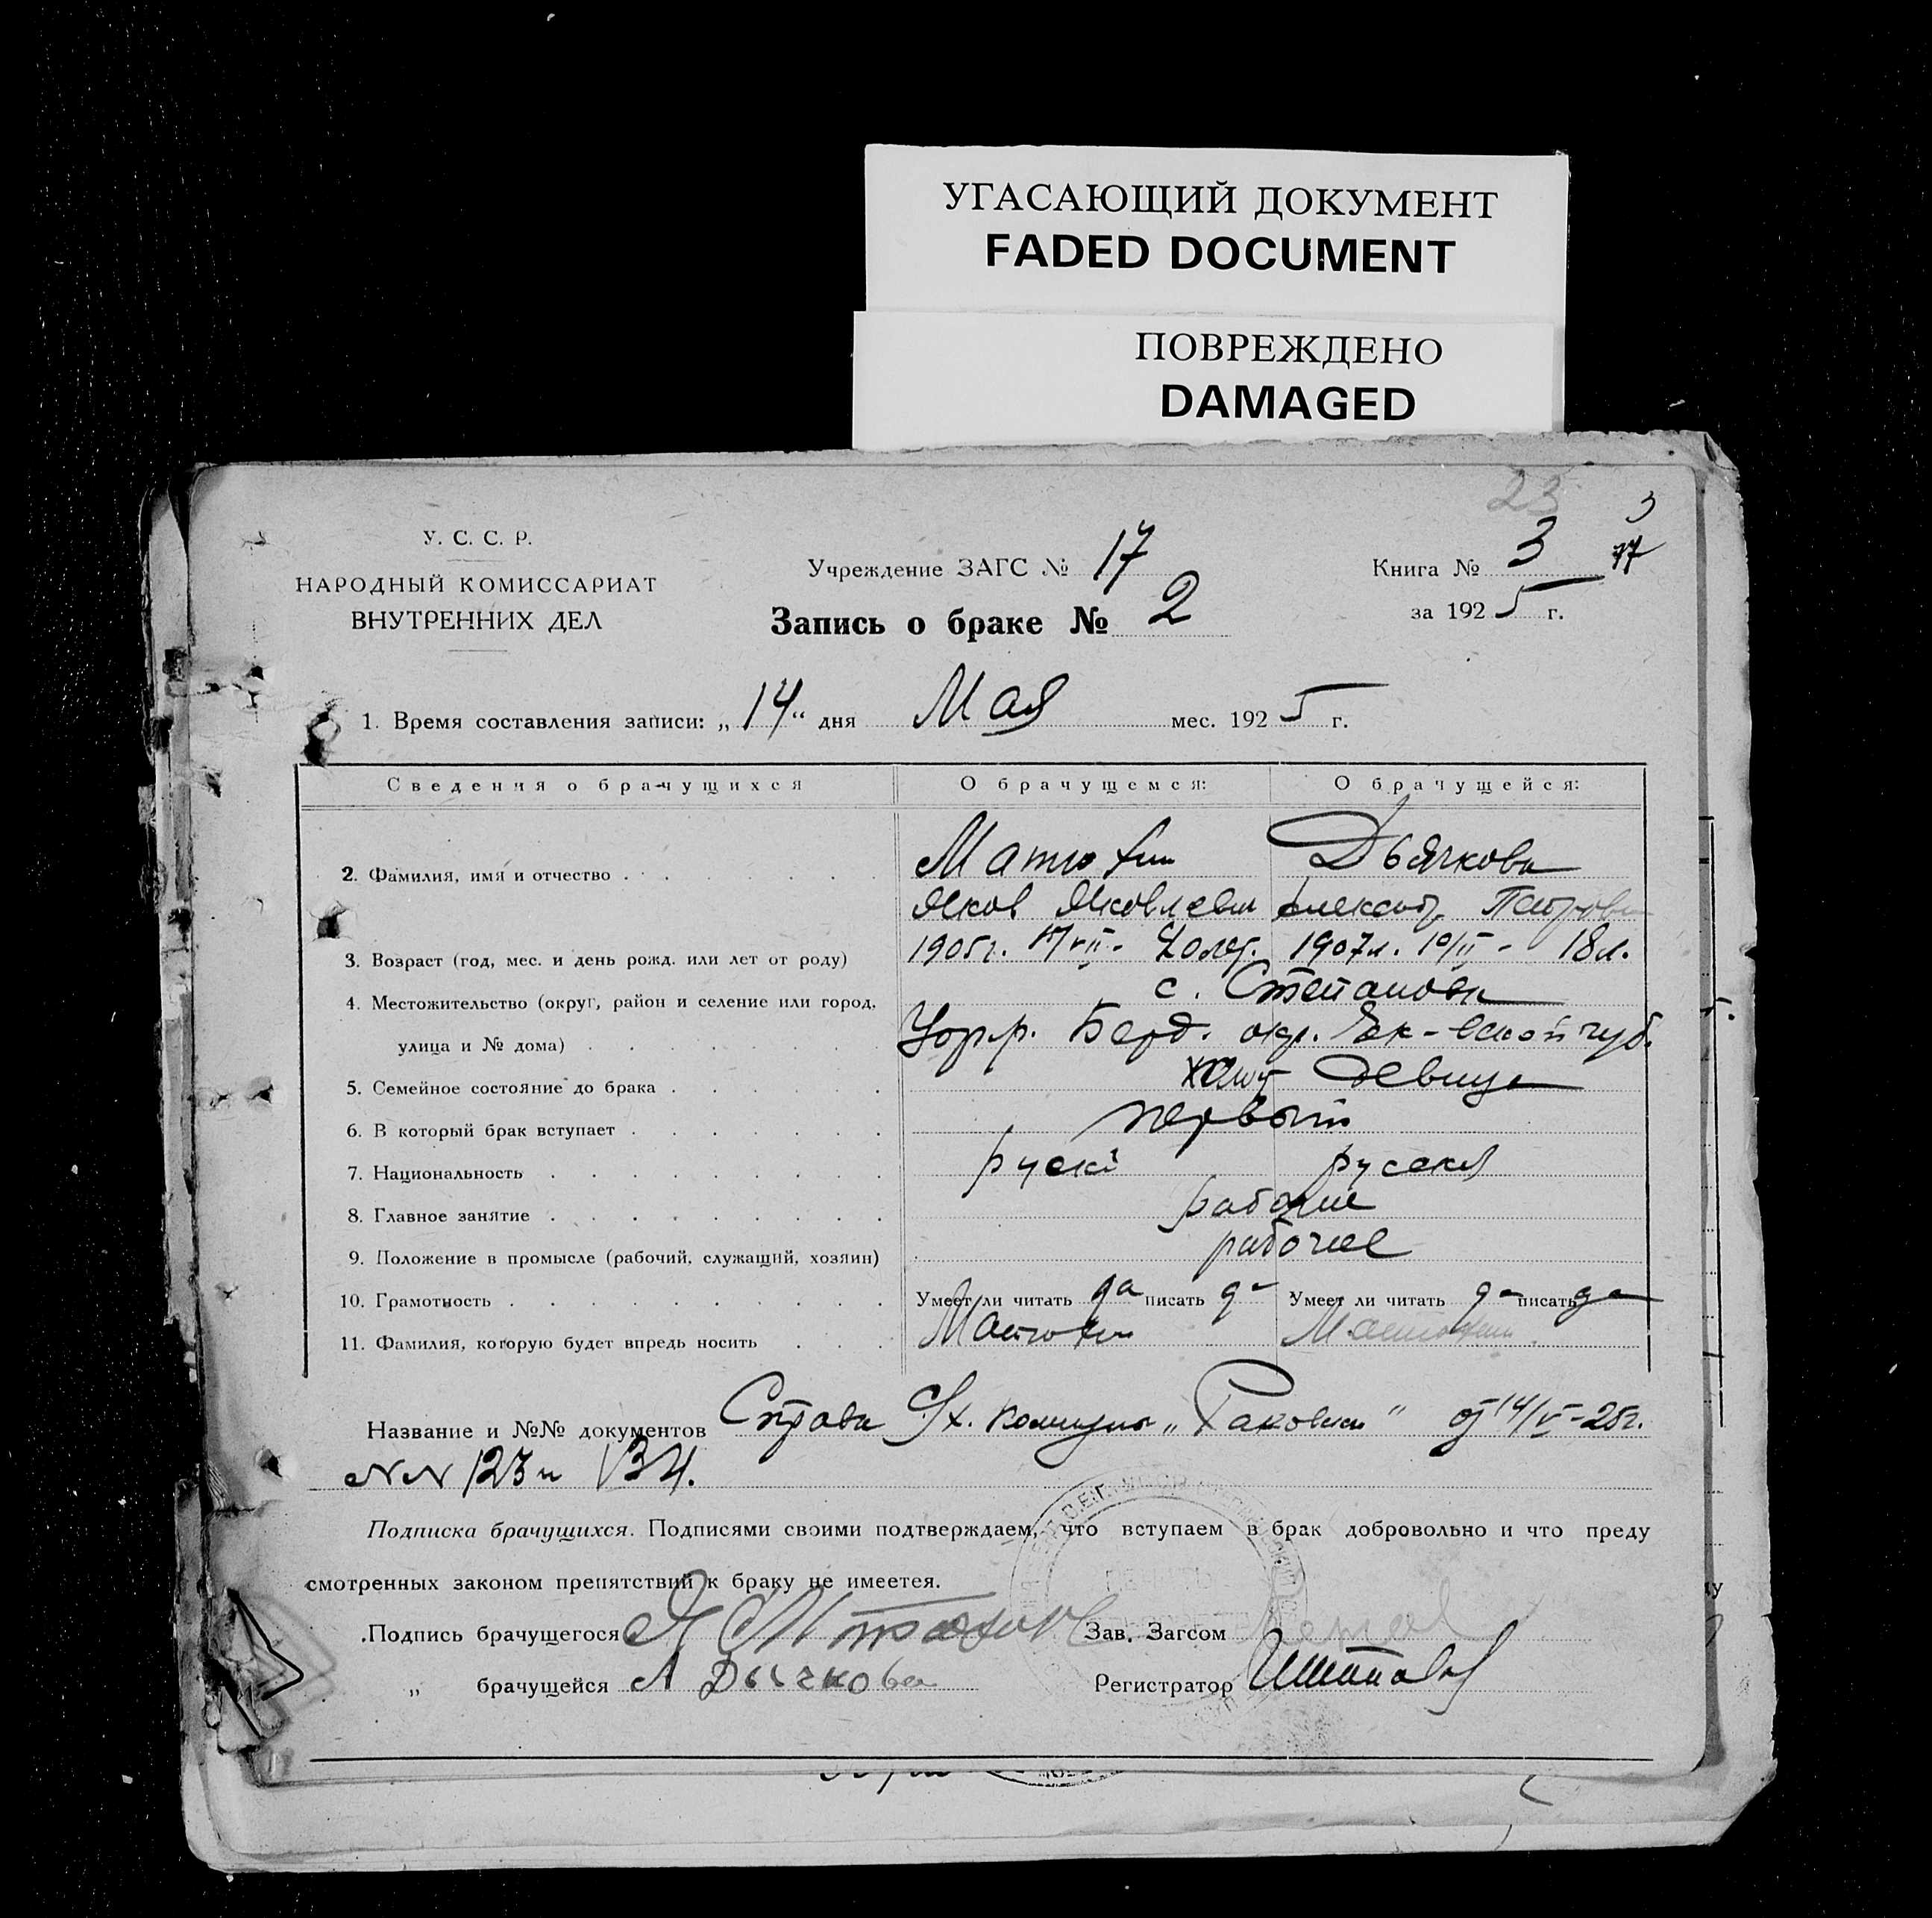 УГАСАЮЩИЙ ДОКУМЕНТ
FADED DOCUMENT
ПОВРЕЖДЕНО
DAMAGED
23
3
У. С. С. Р.
НАРОДНЫЙ КОМИССАРИАТ
ВНУТРЕННИХ ДЕЛ
Учреждение ЗАГС № 17
Книга № 3 77
Запись о браке № 2
за 1925 г.
1. Время составления записи: „14“ дня Мая мес. 1925 г.
Сведения о брачущихся О брачущемся: О брачущейся:
2. Фамилия, имя и отчество Матюхин Дьячкова
Яков Яковлевич Александр Петровн
3. Возраст (год, мес. и день рожд. или лет от роду) 1905г. 17/VII - 20 лет. 1907г. 10/II - 18 л.
4. Местожительство (округ, район и селение или город, с. Степановка
улица и № дома) Берд. окр. Ек-вской губ.
5. Семейное состояние до брака холост девица
6. В который брак вступает первый
7. Национальность рускі руская
8. Главное занятие рабочие
9. Положение в промысле (рабочий, служащий, хозяин) рабочие
10. Грамотность Умеет ли читать да писать да Умеет ли читать да писать да
11. Фамилия, которую будет впредь носить Матюхин Матюхин
Название и №№ документов Справка С/х. комуны „Раковск “ от 14/V-25г.
NN 123 и 134.
Подписка брачущихся. Подписями своими подтверждаем, что вступаем в брак добровольно и что преду
смотренных законом препятствий к браку не имеется.
Подпись брачущегося Я Матюхин Зав. Загсом
„ брачущейся А Дьячкова Регистратор